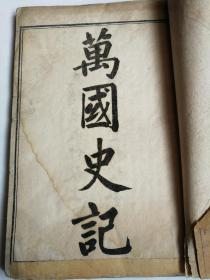 萬國史記